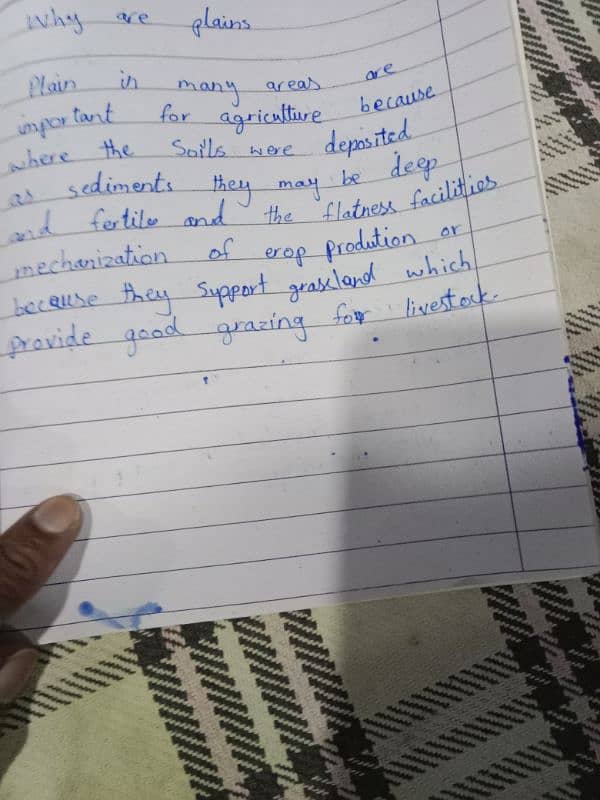 Why are plains
Plain in many areas are
important for agriculture because
where the Soils were deposited
as sediments they may be deep
and fertile and the flatness facilities
mechanization of erop prodution or
because they Support grassland which
provide good grazing for livestock.